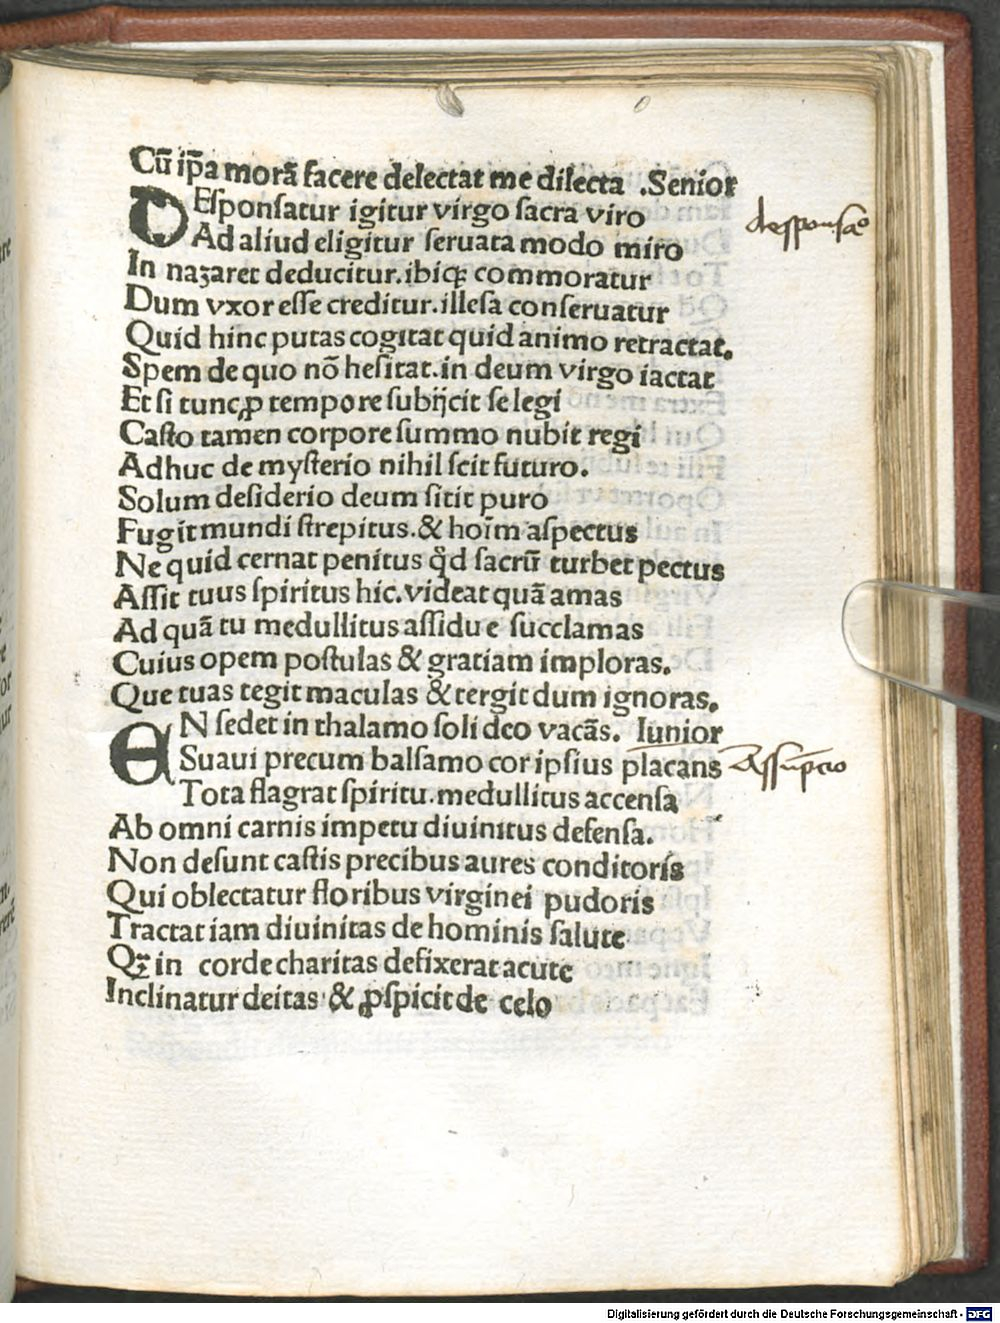 Cū ip̄a morā facere delectat me dilecta .Senior
DEſponſatur igitur virgo ſacra viro
Ad aliud eligitur ſeruata modo miro
In naʒaret deducitur.ibiqꝫ commoratur
Dum vxor eſſe creditur.illeſa conſeruatur
Quid hinc putas cogitat quid animo retractat.
Spem de quo nō heſitat.in deum virgo iactat
Et ſi tunc ꝓ tempore ſubijcit ſe legi
Caſto tamen corpore ſummo nubit regi
Adhuc de myſterio nihil ſcit futuro.
Solum deſiderio deum ſitit puro
Fugit mundi ſtrepitus.& hoīm aſpectus
Ne quid cernat penitus qd̛ ſacrū turbet pectus
Aſſit tuus ſpiritus hic.videat quā amas
Ad quā tu medullitus aſſidue ſucclamas
Cuius opem poſtulas & gratiam imploras.
Que tuas tegit maculas & tergit dum ignoras.
EN ſedet in thalamo ſoli deo vacās. Iunior
Suaui precum balſamo cor ipſius placans
Tota flagrat ſpiritu.medullitus accenſa
Ab omni carnis impetu diuinitus defenſa.
Non deſunt caſtis precibus aures conditoris
Qui oblectatur floribus virginei pudoris
Tractat iam diuinitas de hominis ſalute
Qꝛ in corde charitas defixerat acute
Inclinatur deitas & ꝓſpicit de celo
deſponſaō
Aſſūpcio
Digitalisierung gefördert durch die Deutsche Forschungsgemeinschaft - DFG